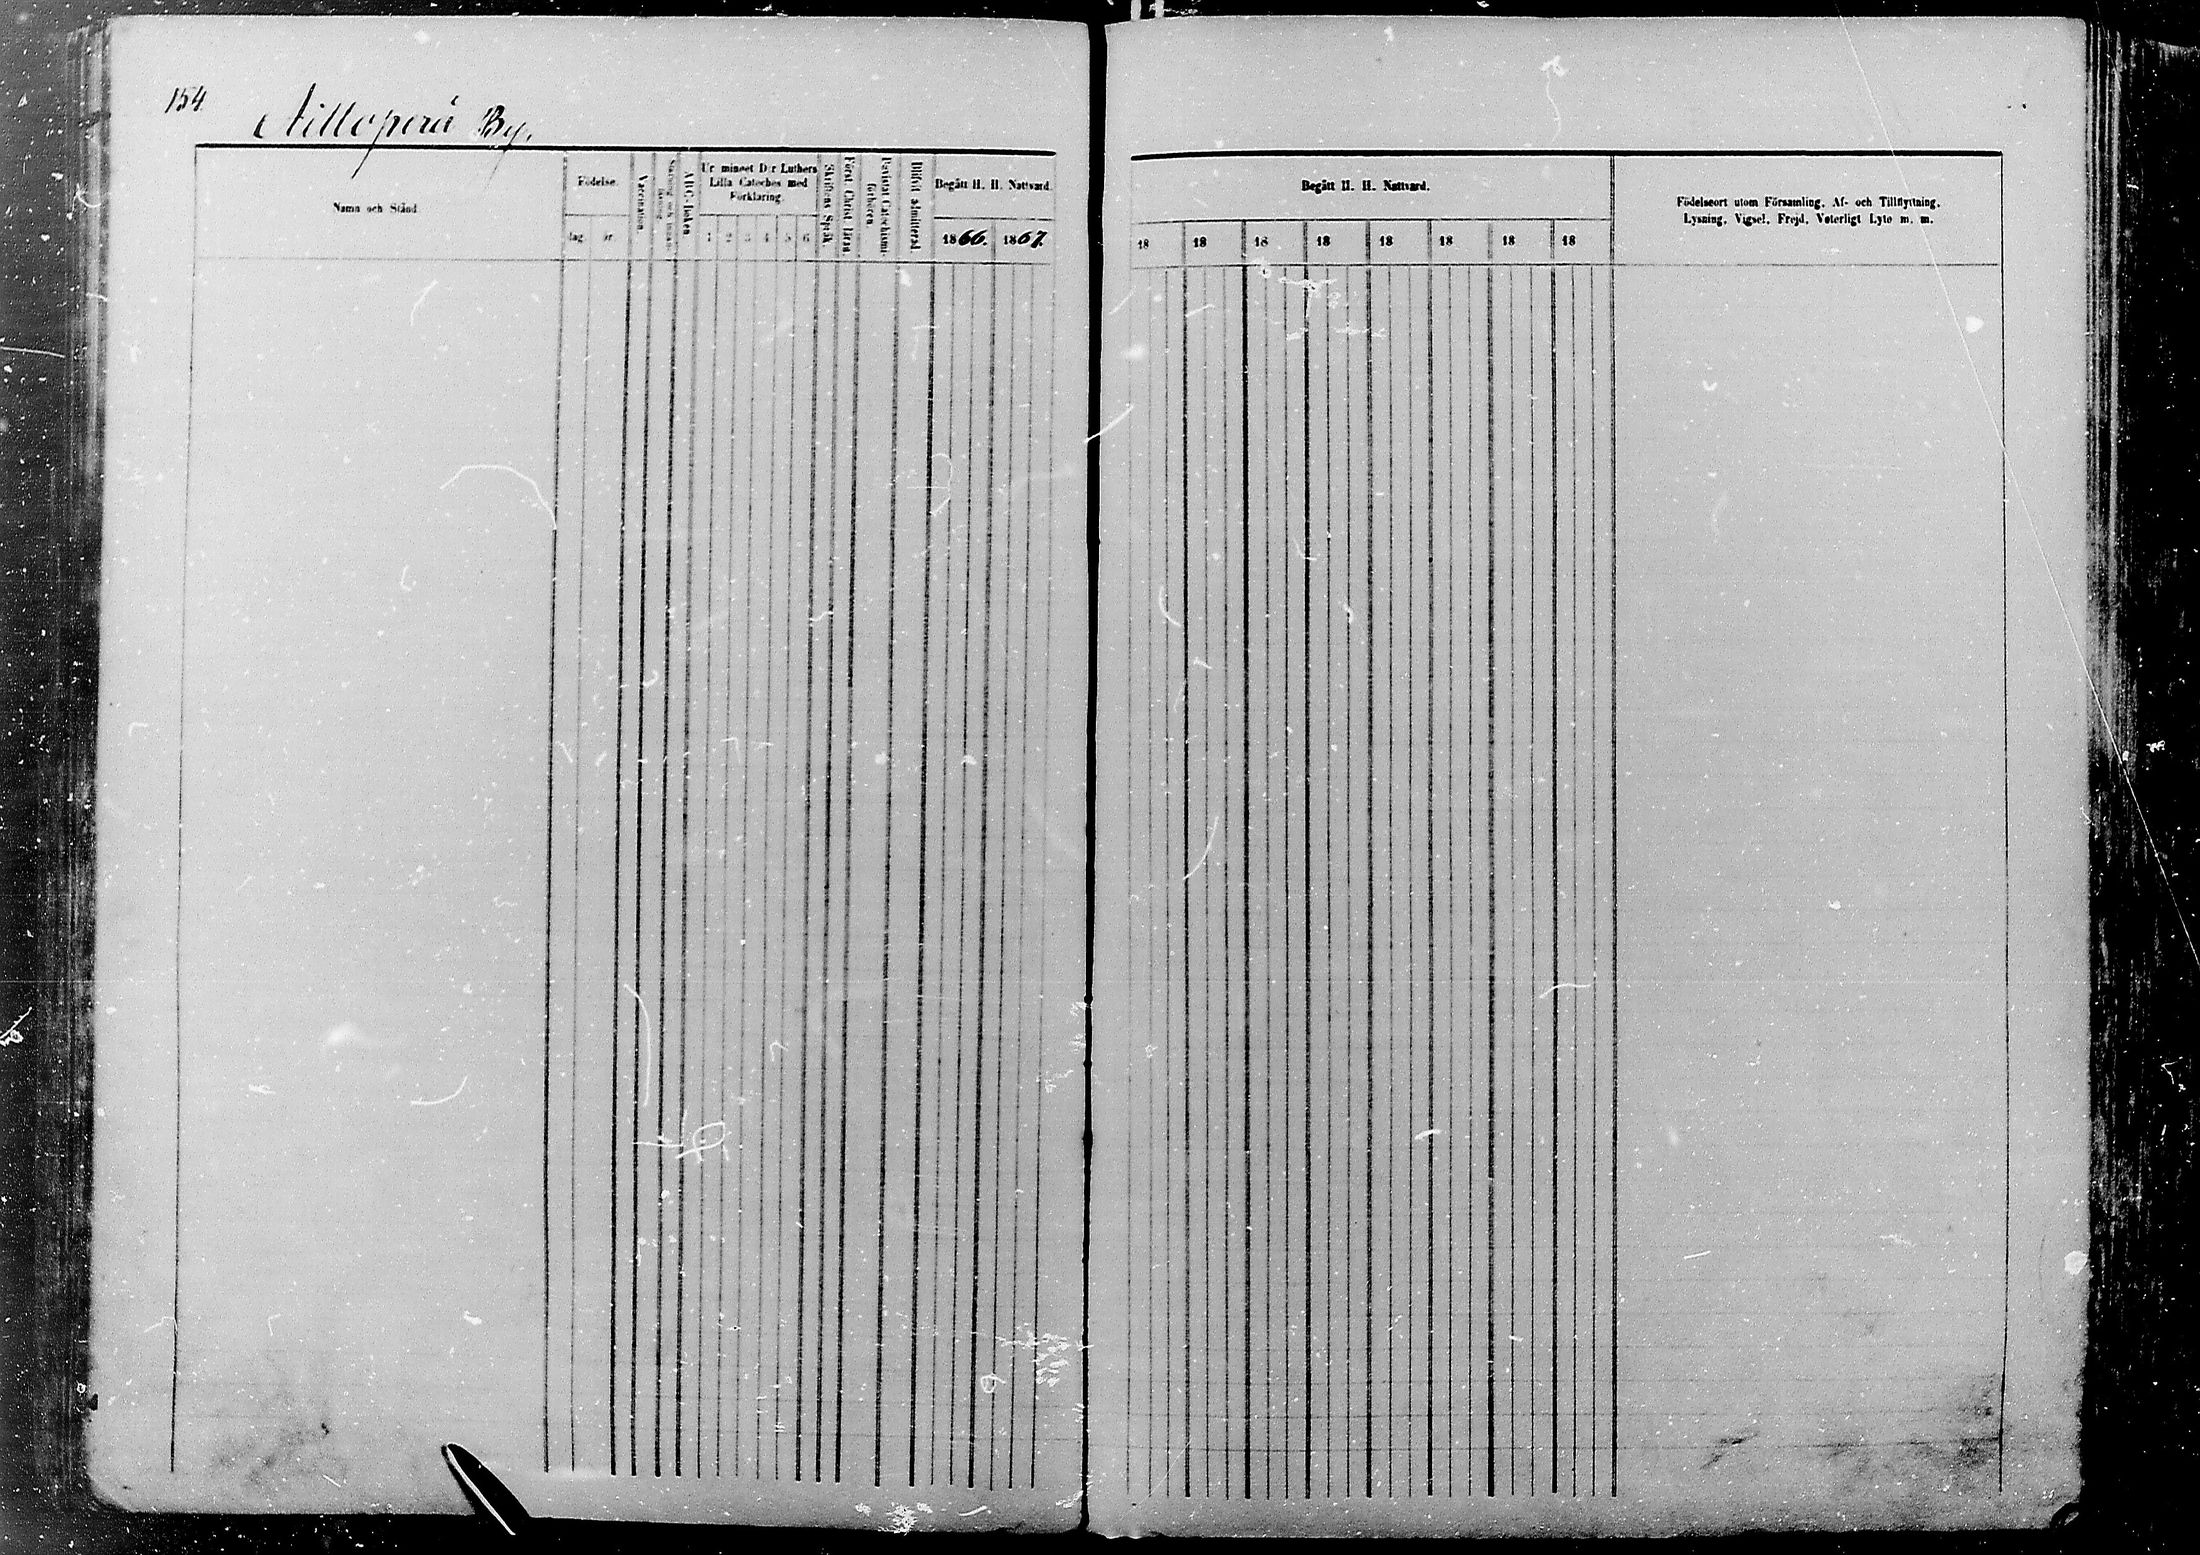 154.
Nilloperä By.
Namn och Stånd
Födelse.
dag. år.
Vaccination.
ABC-Boken
Ur minnet D:r Luthers
Lilla Cateches med
Förklaring.
1 2 3 4 5 6
Skriftens Språk
Först. Christ. läran
Bevistat Catechismi-
förhören.
Blifvit admitterad.
Begått H. H. Nattvard.
1866. 1867.
Begått H. H. Nattvard.
18 18 18 18 18 18 18 18
Födelseort utom Församling, Af- och Tillflyttning,
Lysning, Vigsel, Frejd, Veterligt Lyte m. m.